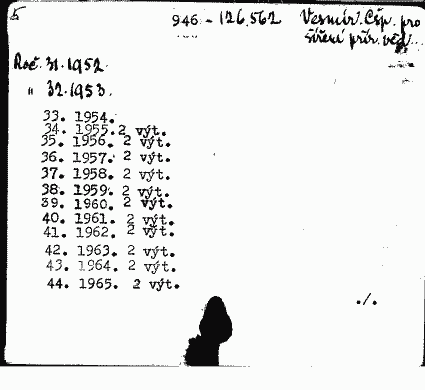 5
946 - 126,562 Vesmír. Čsp. pro
šíření přír. věd...
Roč. 31.1952.
" 32.1953.
33. 1954.
34. 1955.2 výt.
35. 1956. 2 výt.
36. 1957. 2 výt.
37. 1958. 2 výt.
38. 1959. 2 výt.
39. 1960. 2 výt.
40. 1961. 2 výt.
41. 1962. 2 výt.
42. 1963. 2 výt.
43. 1964. 2 výt.
44. 1965. 2 výt.
./.